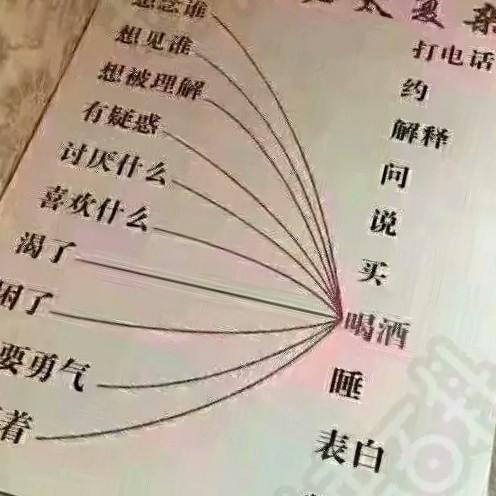 太复杂
想念谁
想见谁
打电话
想被理解
约
有疑惑
解释
讨厌什么
问
喜欢什么
说
渴了
买
困了
喝酒
要勇气
睡
着
表白